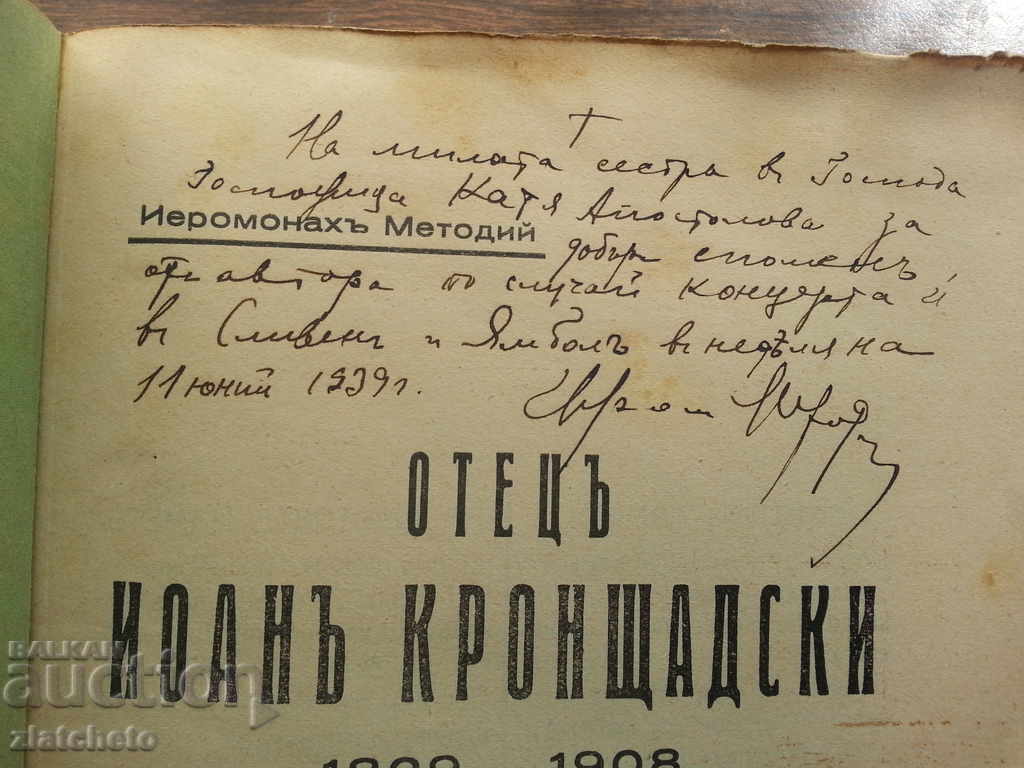 На милата сестра въ Господа
Госпожица Катя Апостолова за
Иеромонахъ Методий
добъръ споменъ,
отъ автора по случай концерта ѝ
въ Сливенъ и Ямболъ въ недѣля на
11 юний 1939 г.
ОТЕЦЪ
ИОАНЪ КРОНЩАДСКИ
1908
BALKAN
auction
zlatcheto